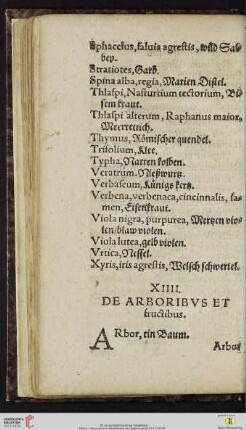 Sphacelus, saluia agrestis, wild Sal-
bey.
Stratiotes, Garb.
Spina alba, regia, Marien Distel.
Thlaspi, Nasturtium tectorium, Bü-
sem kraut.
Thlaspi alterum, Raphanus maior,
Meerrettich.
Thymus, Römischer quendel.
Trifolium, Klee.
Typha, Narren kolben.
Veratrum. Nießwurtz.
Verbascum, Künigs kertz.
Verbena, verbenaca, cincinnalis, sa-
men, Eisenkraut.
Viola nigra, purpurea, Mertzen vio-
len / blaw violen.
Viola lutea, gelb violen.
Vrtica, Nessel.
Xyris, iris agrestis, Welsch schwertel.
XIIII.
DE ARBORIBVS ET
fructibus.
ARbor, ein Baum.
Arbos